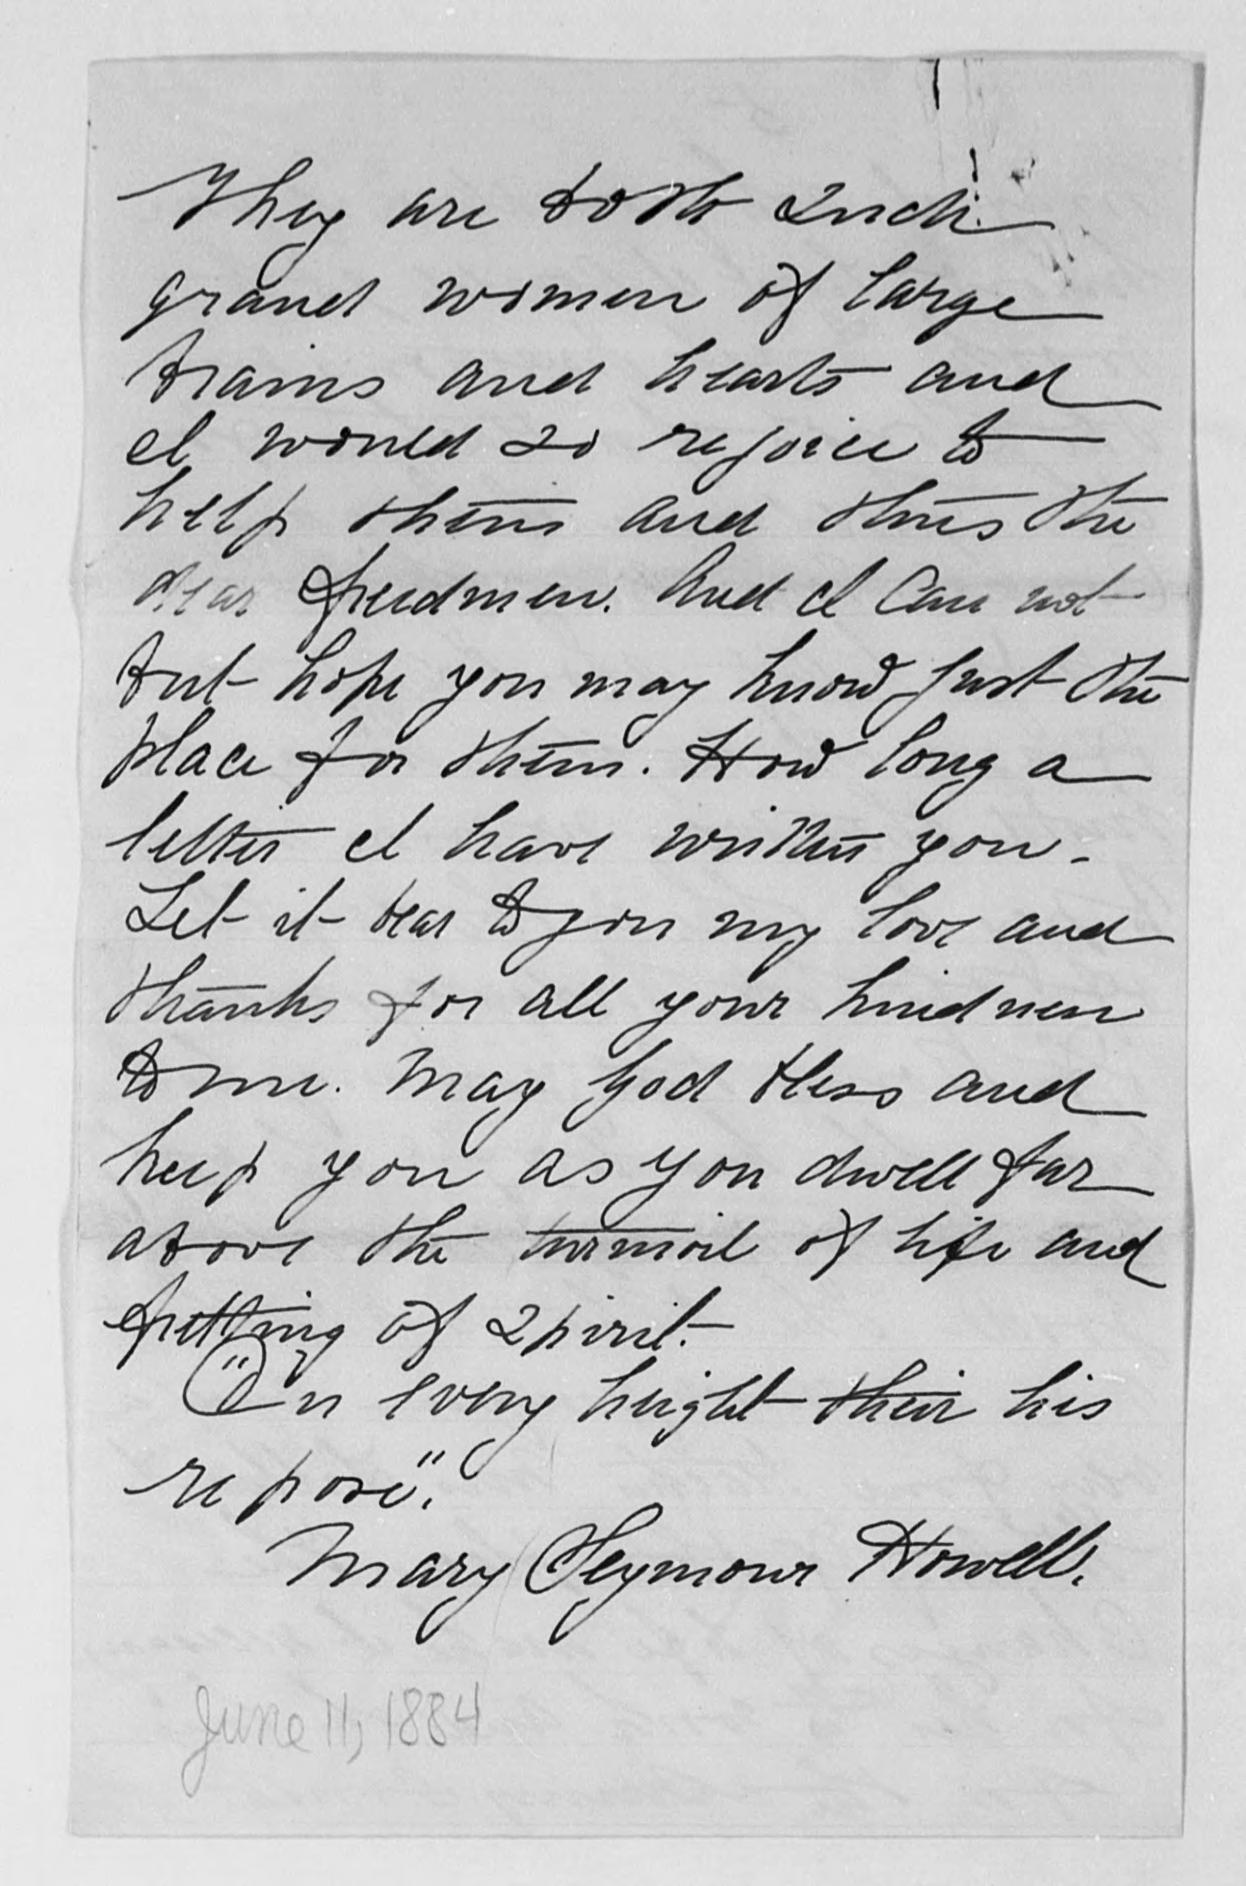 They are both such
grand women of large
brains and hearts and
I would so rejoice to
help them and thus the
dear freedmen. And I can not
but hope you may know just the
place for them. How long a
letter I have written you.
Let it bear to you my love and
thanks for all your kindness
to me. May God bless and
keep you as you dwell far
above the turmoil of life and
fretting of spirit.
"On every height their his
repose".
Mary Seymour Howell.
June 11, 1884